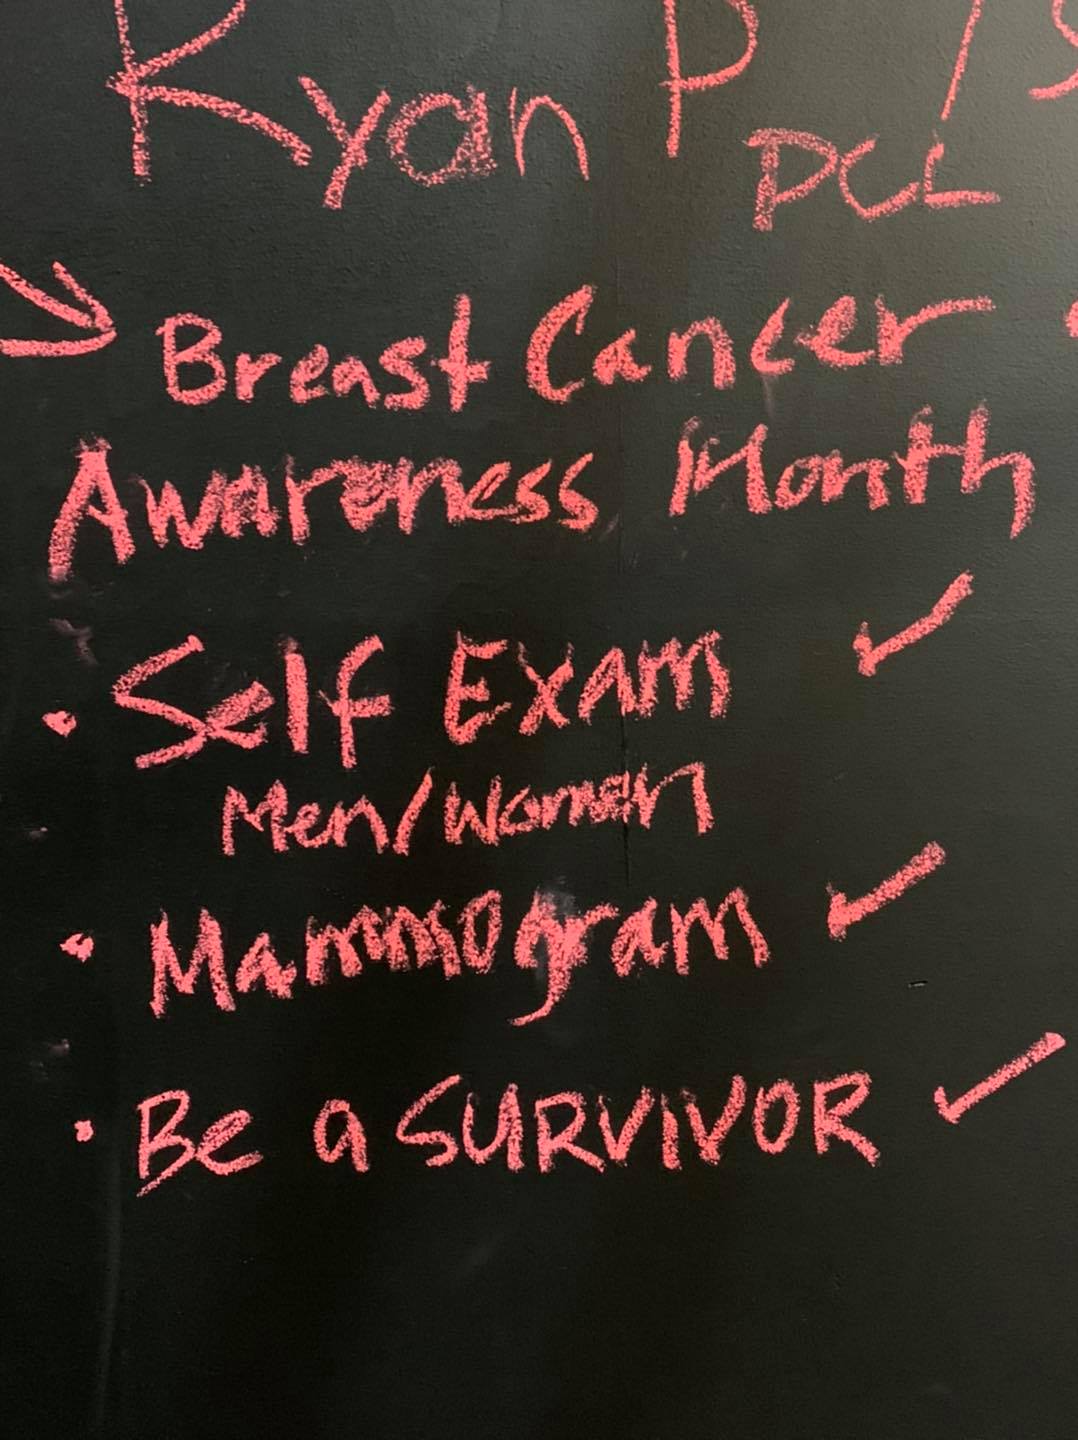 Ryan P /
PCL
Breast Cancer
Awareness Month
• Self Exam ✓
Men/Women
• Mammogram ✓
• Be a SURVIVOR ✓